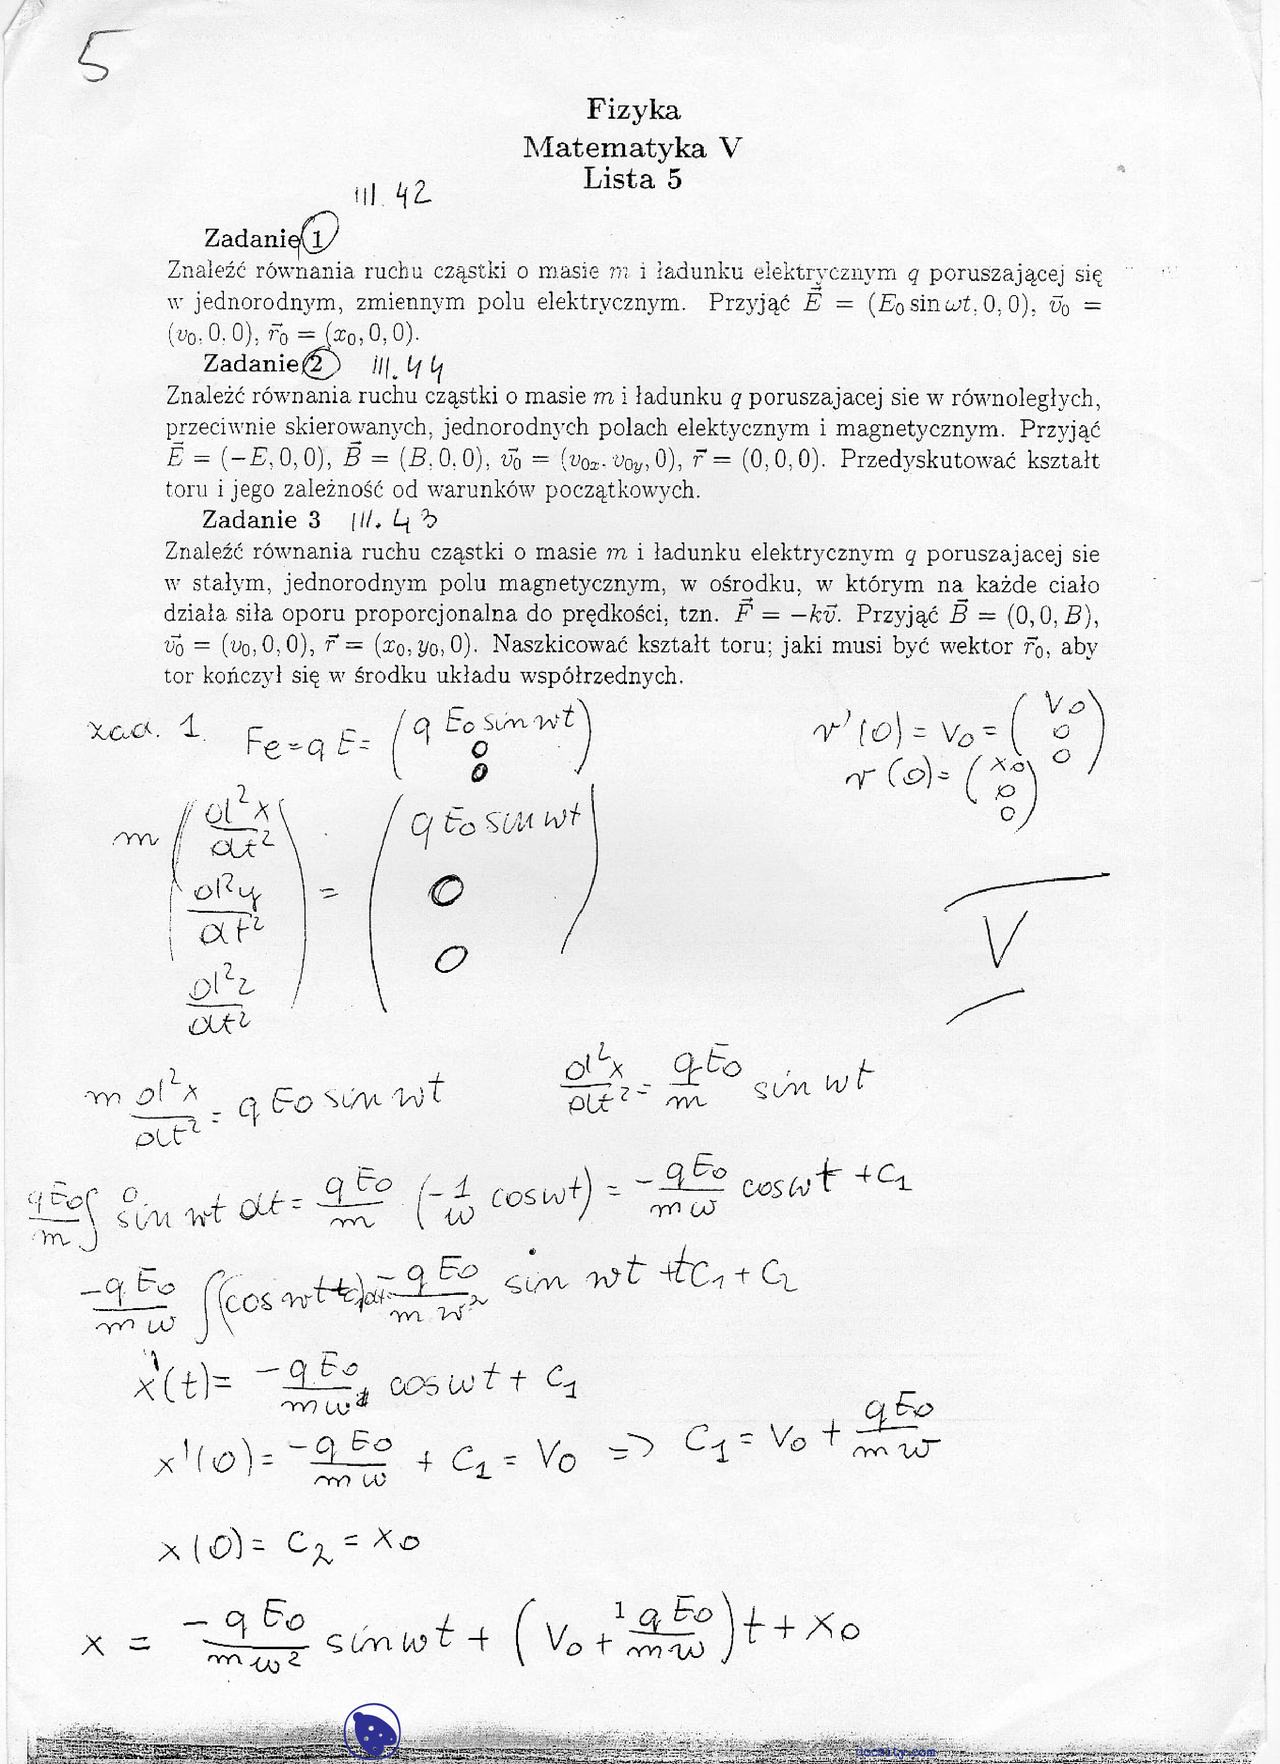 5
Fizyka
Matematyka V
Lista 5
III. 42
Zadanie 1
Znaleźć równania ruchu cząstki o masie m i ładunku elektrycznym q poruszającej się
w jednorodnym, zmiennym polu elektrycznym. Przyjąć E⃗ = (E₀ sin ωt, 0, 0), v⃗₀ =
(v₀, 0, 0), r⃗₀ = (x₀, 0, 0).
Zadanie 2 III. 44
Znaleźć równania ruchu cząstki o masie m i ładunku q poruszajacej sie w równoległych,
przeciwnie skierowanych, jednorodnych polach elektycznym i magnetycznym. Przyjąć
E⃗ = (−E, 0, 0), B⃗ = (B, 0, 0), v⃗₀ = (v₀ₓ, v₀y, 0), r⃗ = (0, 0, 0). Przedyskutować kształt
toru i jego zależność od warunków początkowych.
Zadanie 3 III. 43
Znaleźć równania ruchu cząstki o masie m i ładunku elektrycznym q poruszajacej sie
w stałym, jednorodnym polu magnetycznym, w ośrodku, w którym na każde ciało
działa siła oporu proporcjonalna do prędkości, tzn. F⃗ = −kv⃗. Przyjąć B⃗ = (0, 0, B),
v⃗₀ = (v₀, 0, 0), r⃗ = (x₀, y₀, 0). Naszkicować kształt toru; jaki musi być wektor r⃗₀, aby
tor kończył się w środku układu współrzednych.
zad. 1. Fe = q E = (q E₀ sin wt, 0, 0) r'(0) = V₀ = (V₀, 0, 0)
r(0) = (x₀, 0, 0)
m (d²x/dt², d²y/dt², d²z/dt²) = (q E₀ sin wt, 0, 0)
V
m d²x/dt² = q E₀ sin wt d²x/dt² = qE₀/m sin wt
qE₀/m ∫ sin wt dt = qE₀/m (−1/w cos wt) = −qE₀/mw cos wt + C₁
−qE₀/mw ∫(cos wt + C₁)dt = −qE₀/mw² sin wt + tC₁ + C₂
x'(t) = −qE₀/mw cos wt + C₁
x'(0) = −qE₀/mw + C₁ = V₀ => C₁ = V₀ + qE₀/mw
x(0) = C₂ = x₀
x = −qE₀/mw² sin wt + (V₀ + qE₀/mw)t + x₀
docsity.com